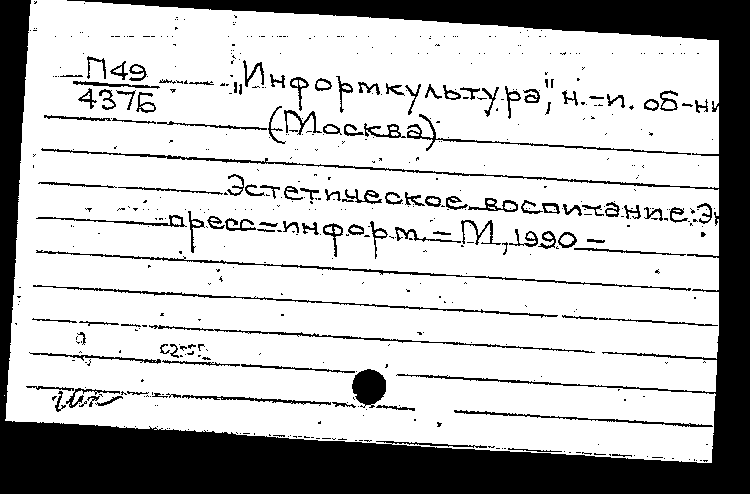 П49
437Б
„Информкультура", н.-п. об-ни
(Москва)
Эстетическое воспитание: Эк
пресс-информ. – М, 1990 –